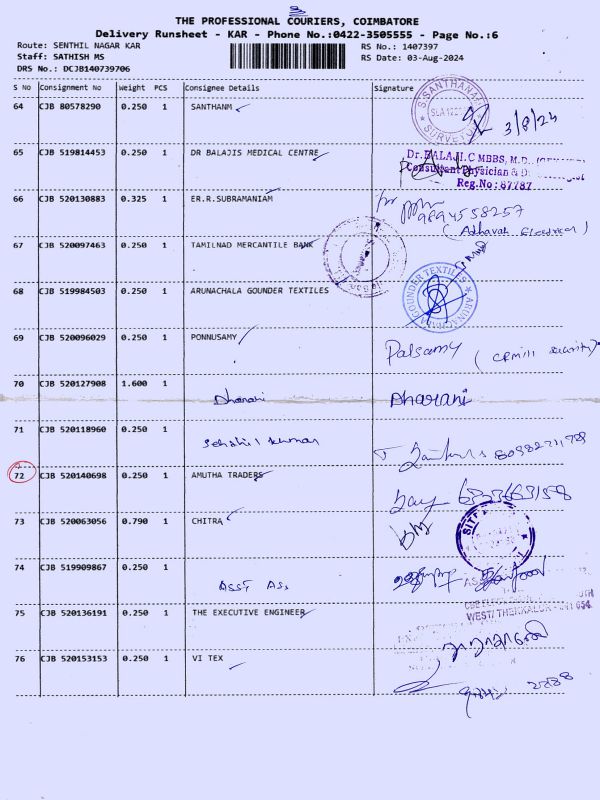 THE PROFESSIONAL COURIERS, COIMBATORE
Delivery Runsheet - KAR - Phone No.:0422-3505555 - Page No.:6
Route: SENTHIL NAGAR KAR
RS No.: 1407397
Staff: SATHISH MS
RS Date: 03-Aug-2024
DRS No.: DCJB140739706
S No Consignment No Weight PCS Consignee Details Signature
64 CJB 80578290 0.250 1 SANTHANM
3/8/24
65 CJB 519814453 0.250 1 DR BALAJIS MEDICAL CENTRE
Dr. BALAJI.C MBBS, M.D.,
Consultant Physician &
Reg.No: 87787
66 CJB 520130883 0.325 1 ER.R.SUBRAMANIAM
9894558257
67 CJB 520097463 0.250 1 TAMILNAD MERCANTILE BANK
68 CJB 519984503 0.250 1 ARUNACHALA GOUNDER TEXTILES
ARUNACHALA GOUNDER TEXTILES
69 CJB 520096029 0.250 1 PONNUSAMY
Palsamy
70 CJB 520127908 1.600 1 Dharani Dharani
71 CJB 520118960 0.250 1 Senthil kumar
72 CJB 520140698 0.250 1 AMUTHA TRADERS
73 CJB 520063056 0.790 1 CHITRA
74 CJB 519909867 0.250 1 ASST Ass
75 CJB 520136191 0.250 1 THE EXECUTIVE ENGINEER
76 CJB 520153153 0.250 1 VI TEX